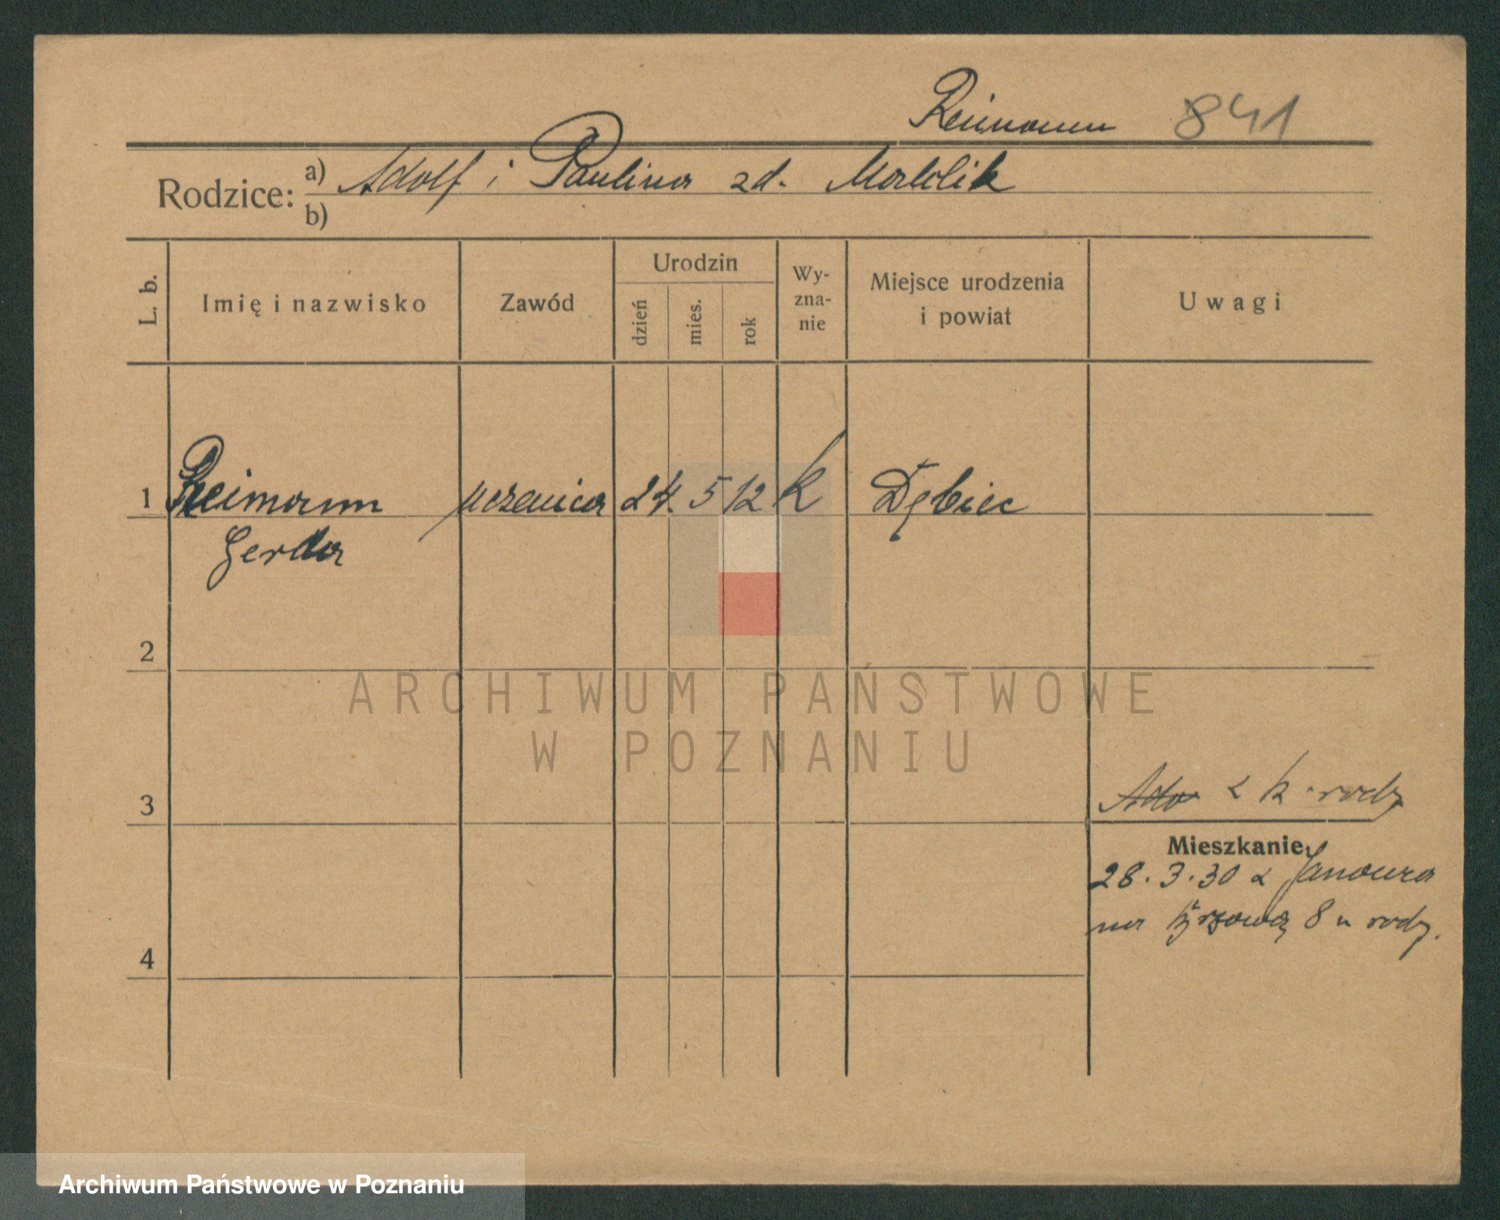 Reimann 841
Rodzice: a) Adolf i Paulina zd.
b)
L. b.
Imię i nazwisko
Zawód
Urodzin
dzień
mies.
rok
Wy-
zna-
nie
Miejsce urodzenia
i powiat
Uwagi
1 Reimann uczenica 24. 5 12 k Dębiec
Gerda
2
ARCHIWUM PAŃSTWOWE
W POZNANIU
z k. rodz
3
Mieszkanie
28.3.30 z Janowa
na 8 u rodz.
4
Archiwum Państwowe w Poznaniu